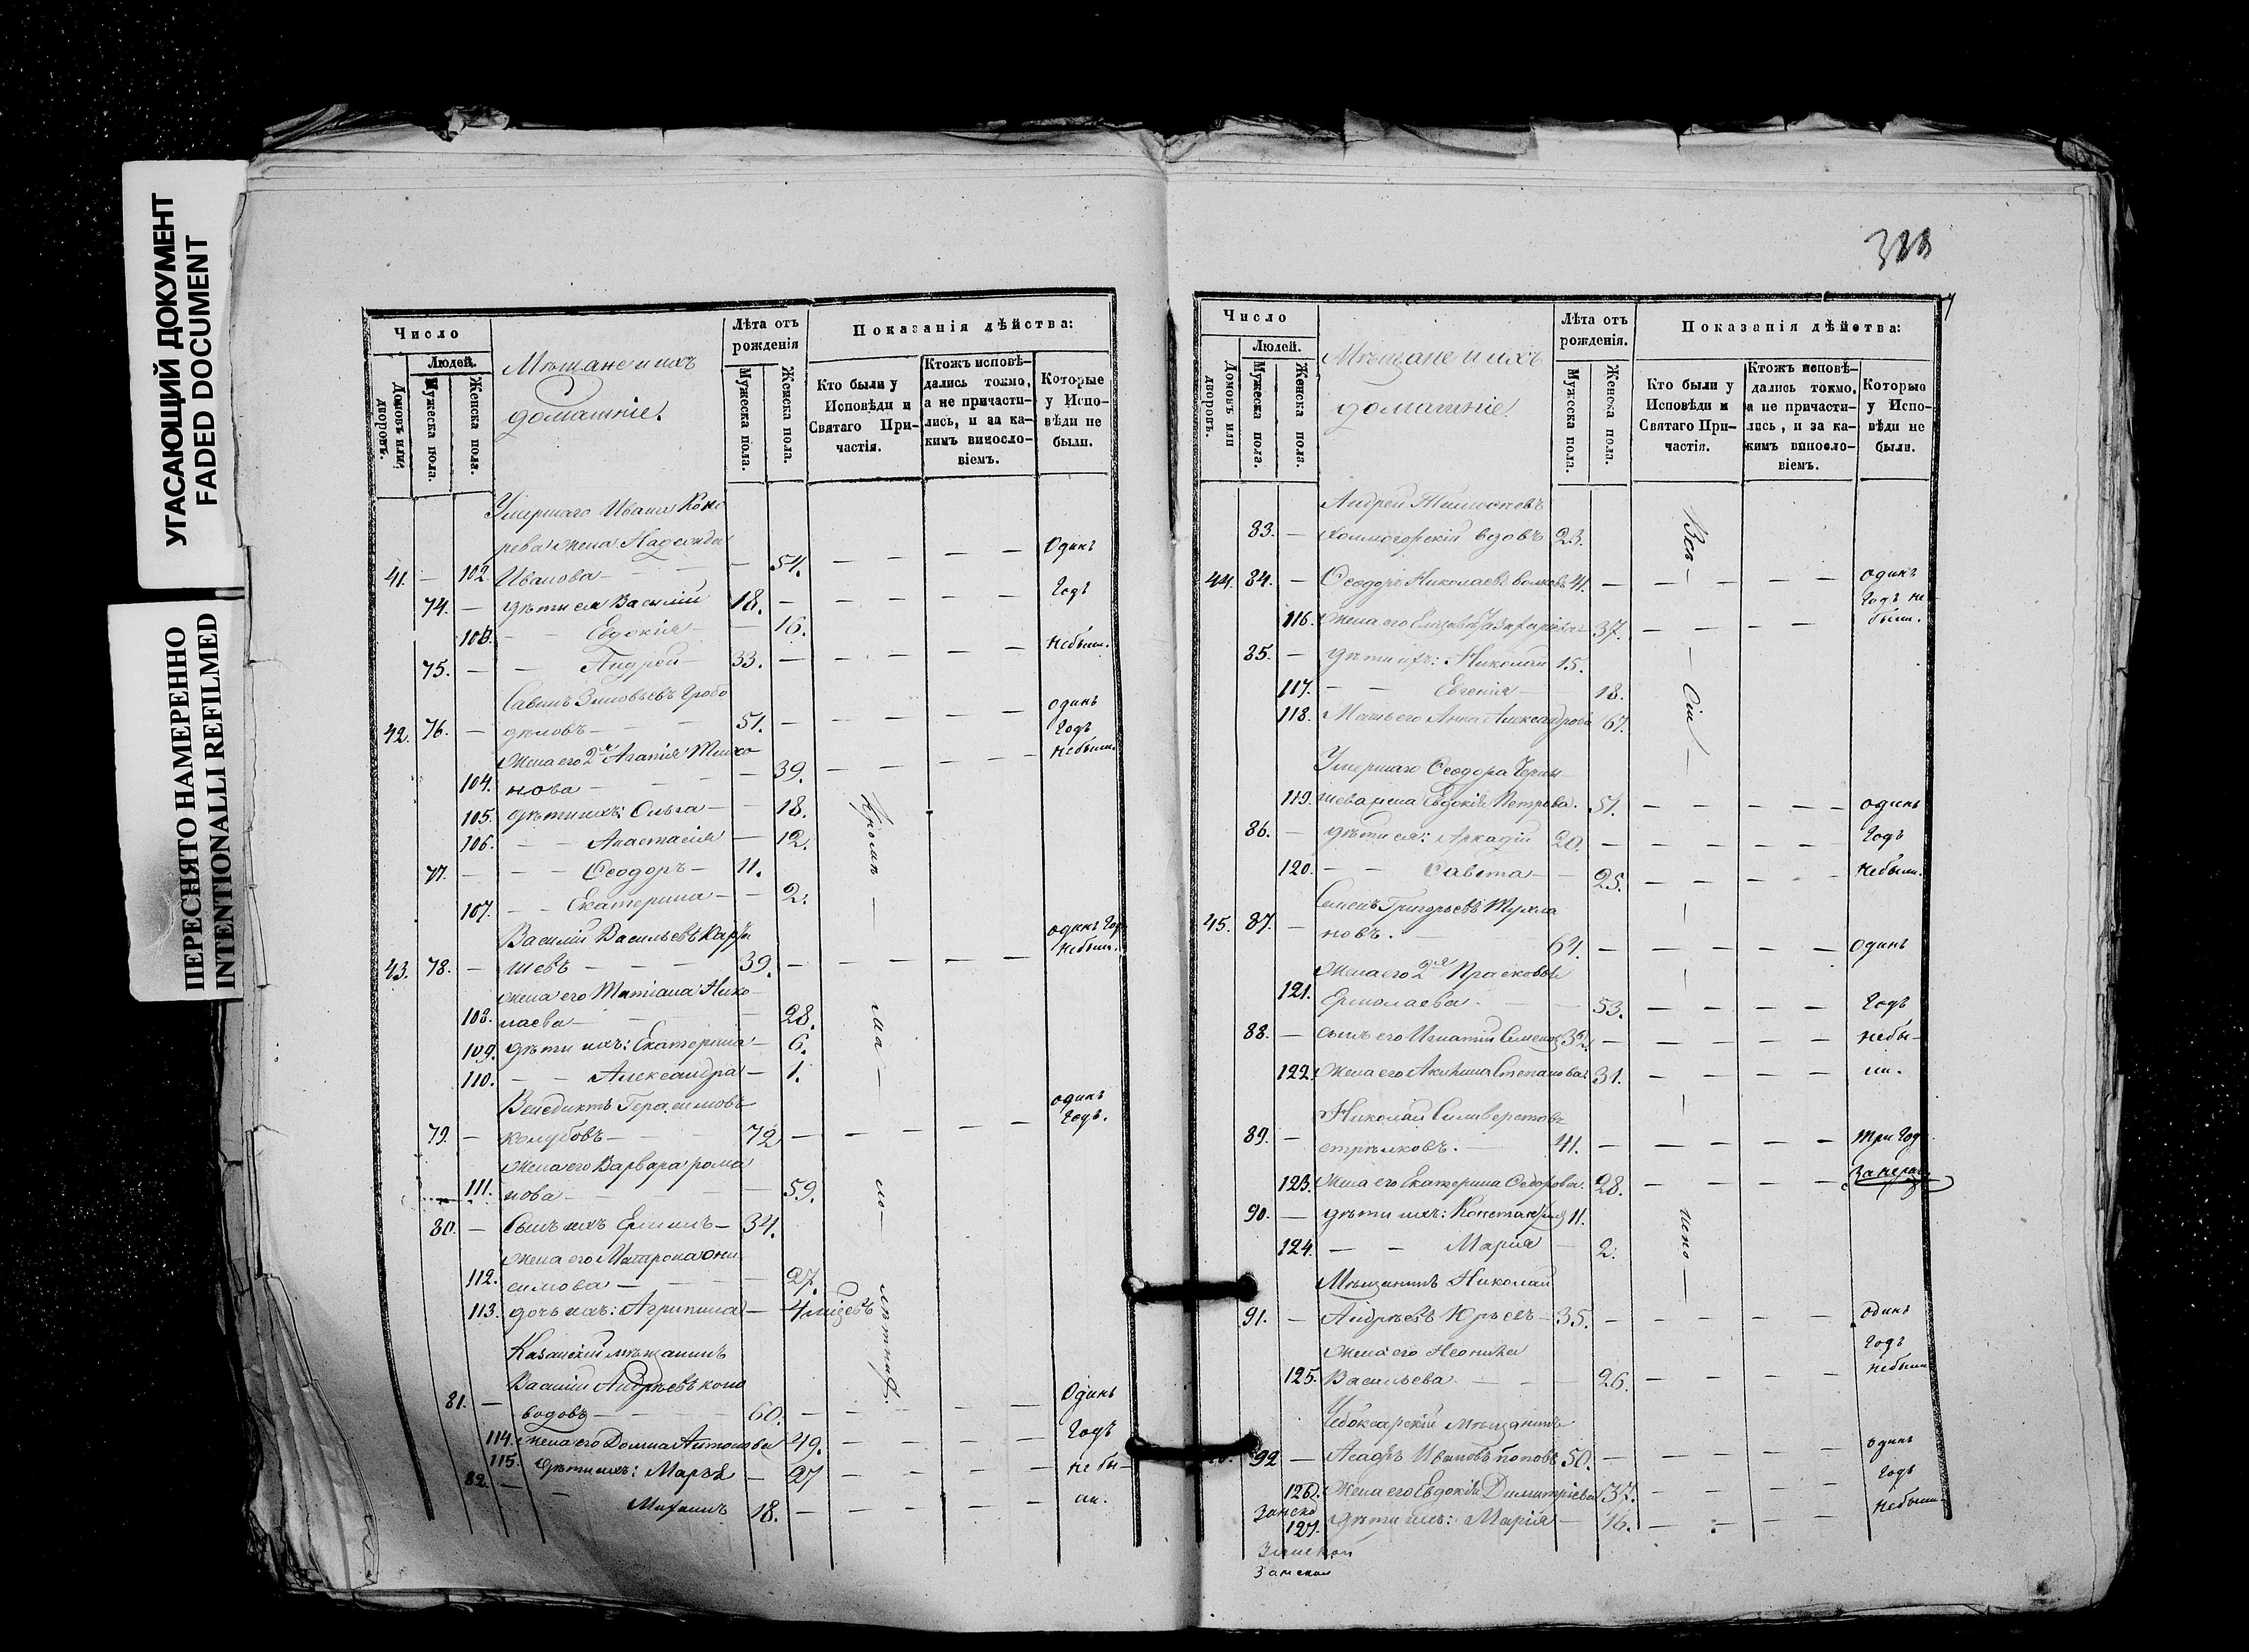 УГАСАЮЩИЙ ДОКУМЕНТ
FADED DOCUMENT
ПЕРЕСНЯТО НАМЕРЕННО
INTENTIONALLI REFILMED
Число
Людей.
Домовъ или дворовъ.
Мужеска пола.
Женска пола.
Мѣщане и ихъ
домашніе.
Лѣта отъ рожденія
Мужеска пола.
Женска пола.
Показанія дѣйства:
Кто были у Исповѣди и Святаго Причастія.
Ктожъ исповѣдались токмо, а не причастились, и за какимъ винословіемъ.
Которые у Исповѣди не были.
Умершаго Ивана Коко
рева жена Надежда
41. — 102. Иванова — — 54. — — — — Одинъ
74. — дѣти ея Василій 18. — — — — — Годъ
103. — — Евдокія — — 16.
75. — — — Андрей — 33. — — — — — небыли.
Савинъ Зиновьевъ Гробо
42. 76. — дѣловъ — — 51. — — — — — одинъ Годъ
жена его 2я Агапія Тихо
104. нова — — — 39. — — — — — небыли.
105. дѣти ихъ: Ольга — — 18.
106. — — Анастасія — 12.
77. — — — Ѳеодоръ — 11.
107. — — Екатерина — — 2.
Кромѣ — ма — ло — лѣтнихъ.
Василій Васильевъ
43. 78. — шевъ — — — 39. — — — — — одинъ Год небыли.
жена его Татіана Нико
108. лаева — — — 28.
109. дѣти ихъ: Екатерина — 6.
110. — — Александра — 1.
Венедиктъ Герасимовъ
79. — колубовъ — — 72 — — — — — одинъ Годъ.
жена его Варвара рома
111. нова — — — 59.
80. — Сынъ ихъ — 34.
жена его Матрона они
112. симова — — — 27.
113. дочь ихъ: Агрипина — 4 мцевъ
Казанскій мѣщанинъ
Василій Андреевъ коно
81. — водовъ — — — 60. — — — — — Одинъ
114. жена его Домна Антонова 49. — — — — Годъ
115. дѣти ихъ: Марья — 27 — — — — не бы-
82. — — Михаилъ 18. — — — — — ли.
Число
Людей.
Домовъ или дворовъ.
Мужеска пола.
Женска пола.
Мѣщане и ихъ
домашніе.
Лѣта отъ рожденія.
Мужеска пола.
Женска пола.
Показанія дѣйства:
Кто были у Исповѣди и Святаго Причастія.
Ктожъ исповѣдались токмо, а не причастились, и за какимъ винословіемъ.
Которые у Исповѣди не были.
Андрей Тимоѳеевъ
83. — холмогорскій вдовъ 23.
44. 84. — Ѳеодоръ Николаевъ волковъ 41. — — — — — одинъ
Годъ не
116. Жена его Елизавета Захарьева 37. — — — — были.
85. — дѣти ихъ: Николай 15.
117. — — Евгенія — 18.
118. Мать его Анна Александрова 67.
Умершаго Ѳеодора Черны
119. шева жена Евдокія Петрова. 51. — — — — — одинъ
86. — дѣти ея: Аркадій 20. — — — — — Годъ
120. — — Савета — 25. — — — — небыли.
Семенъ Григорьевъ Тухла
45. 87. — новъ. 64. — — — — — Одинъ
Жена его 2я Прасковья
121. Ермолаева. — — 53. — — — — Годъ
88. — сынъ его Игнатій Семенов 32. — — — — — небы-
122. Жена его Акилина Степанова 31. — — — — ли.
Николай Сильверстовъ
89. — стрѣлковъ. — 41. — — — — — три Год
123. Жена его Екатерина Ѳедорова. 28. — — — —
90. — дѣти ихъ: 11.
124. — — Марія — 2.
Всѣ — — Сіи — испо —
Мѣщанинъ Николай
91. — Андреевъ Юрьевъ — 35. — — — — — одинъ
Жена его Неонила Годъ
125. Васильева. — — — 26. — — — — небыли
Чебоксарскій Мѣщанинъ
92 — Иванов попов 50. — — — — — одинъ
126. Жена его Евдокія Димитріева 37. — — — — Годъ
127. дѣти ихъ: Марія — 16. — — — — небыли.